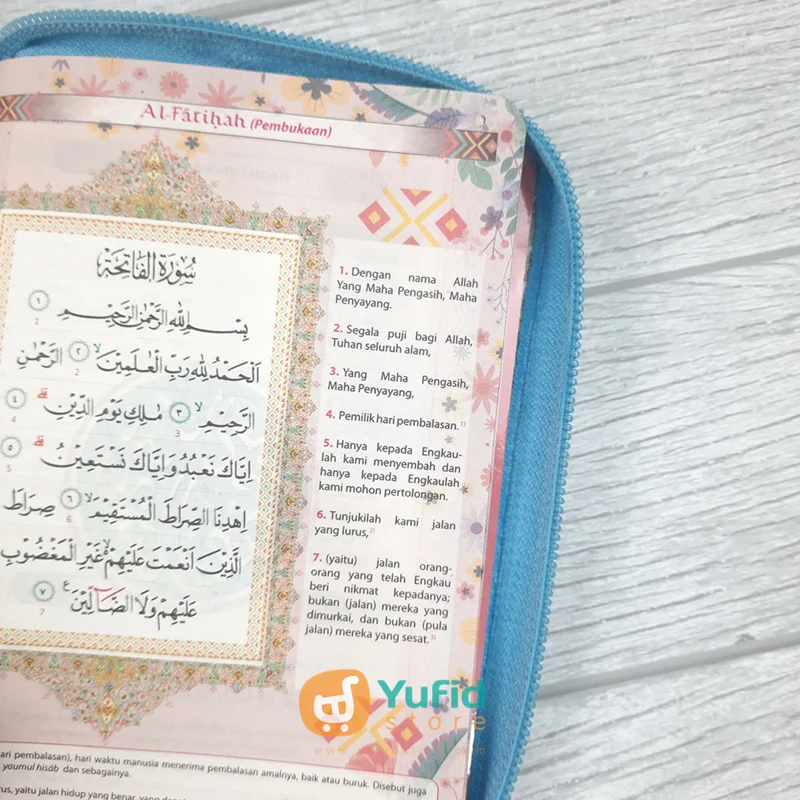 Al-Fātiḥah (Pembukaan)
سُوْرَةُ الْفَاتِحَةِ
بِسْمِ اللّٰهِ الرَّحْمٰنِ الرَّحِيْمِ ١
1
اَلْحَمْدُ لِلّٰهِ رَبِّ الْعٰلَمِيْنَۙ ٢ الرَّحْمٰنِ
2
الرَّحِيْمِۙ ٣ مٰلِكِ يَوْمِ الدِّيْنِۗ ٤
3 4
اِيَّاكَ نَعْبُدُ وَاِيَّاكَ نَسْتَعِيْنُۗ ٥
5
اِهْدِنَا الصِّرَاطَ الْمُسْتَقِيْمَۙ ٦ صِرَاطَ
6
الَّذِيْنَ اَنْعَمْتَ عَلَيْهِمْۙ غَيْرِ الْمَغْضُوْبِ
عَلَيْهِمْ وَلَا الضَّاۤلِّيْنَࣖ ٧
7
1. Dengan nama Allah
Yang Maha Pengasih, Maha
Penyayang.
2. Segala puji bagi Allah,
Tuhan seluruh alam,
3. Yang Maha Pengasih,
Maha Penyayang,
4. Pemilik hari pembalasan.¹⁾
5. Hanya kepada Engkau-
lah kami menyembah dan
hanya kepada Engkaulah
kami mohon pertolongan.
6. Tunjukilah kami jalan
yang lurus,²⁾
7. (yaitu) jalan orang-
orang yang telah Engkau
beri nikmat kepadanya;
bukan (jalan) mereka yang
dimurkai, dan bukan (pula
jalan) mereka yang sesat.³⁾
Yufid
store
pembalasan), hari waktu manusia menerima pembalasan amalnya, baik atau buruk. Disebut juga
yaumul hisāb dan sebagainya.
yaitu jalan hidup yang benar, yang